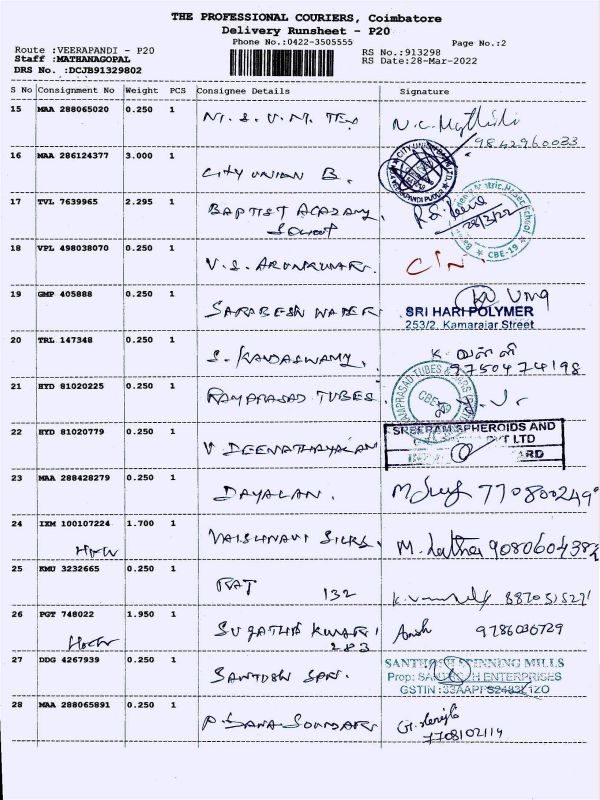 THE PROFESSIONAL COURIERS, Coimbatore
Delivery Runsheet - P20
Phone No.:0422-3505555
Page No.:2
Route :VEERAPANDI - P20
RS No.:913298
Staff :MATHANAGOPAL
RS Date:28-Mar-2022
DRS No. :DCJB91329802
S No Consignment No Weight PCS Consignee Details Signature
15 MAA 288065020 0.250 1
9842960033
16 MAA 286124377 3.000 1 CITY UNION B.
17 TVL 7639965 2.295 1 BAPTIST ACADAMY
28/3/22
CBE-19
18 VPL 498038070 0.250 1 V.S. ARUNKUMAR.
19 GMP 405888 0.250 1 SARABESH WATER
SRI HARI POLYMER
253/2, Kamarajar Street
20 TRL 147348 0.250 1 S. KANDASWAMY.
9750474198
21 HYD 81020225 0.250 1 RAMPRASAD TUBES
22 HYD 81020779 0.250 1 V DEENATHAYALAN
SREERAM SPHEROIDS AND
PVT LTD
23 MAA 288428279 0.250 1 DAYALAN.
24 IXM 100107224 1.700 1 VAISHNAVI SILKS. M. Latha 9080604382
25 KMU 3232665 0.250 1 132
26 PGT 748022 1.950 1 SUGATHA KUMARI 9786030729
283
27 DDG 4267939 0.250 1 SANTOSH SPN.
SANTHOSH SPINNING MILLS
Prop: SANTHOSH ENTERPRISES
GSTIN :33AAPFS2483L1ZO
28 MAA 288065891 0.250 1
7708102114